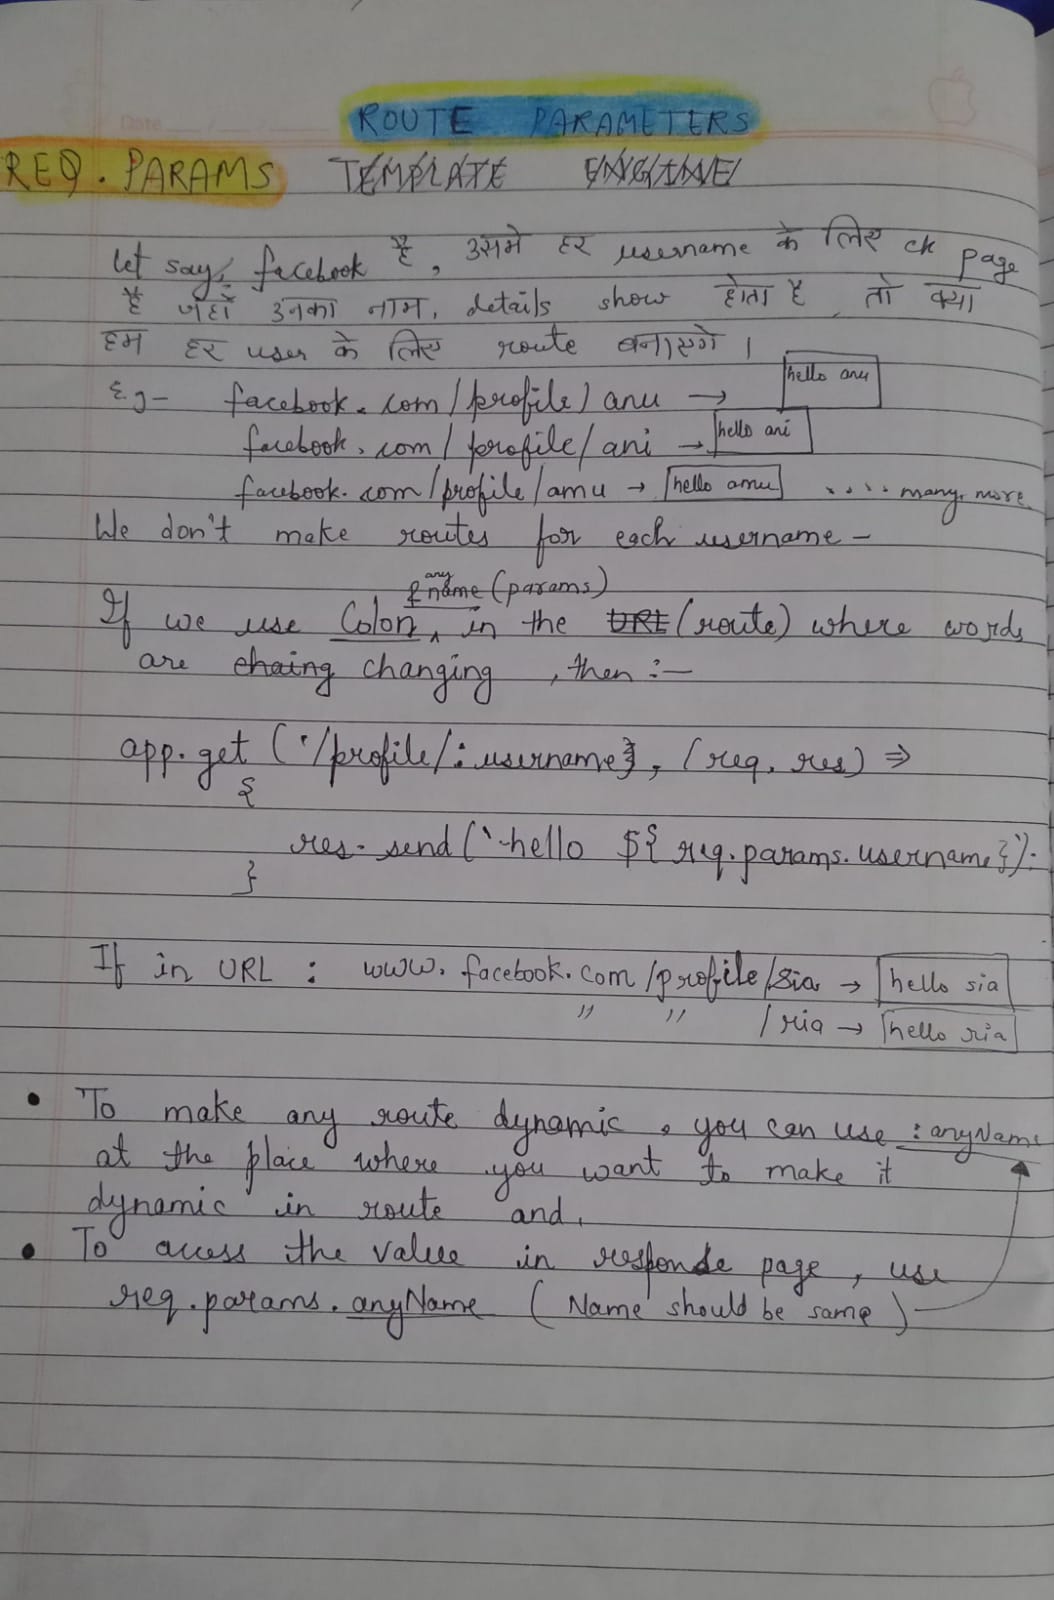 ROUTE PARAMETERS
REQ. PARAMS TEMPLATE ENGINE
let say, facebook है, उसमे हर username के लिए ek page
है जहाँ उनका नाम, details show होता है तो क्या
हम हर user के लिए route बनाएगे ।
E.g- facebook.com/profile/anu → hello anu
facebook.com/profile/ani → hello ani
facebook.com/profile/amu → hello amu .... many more
We don't make routes for each username -
& any name (params)
If we use Colon ^ in the URL (route) where words
are chaing changing , then :-
app.get ('/profile/:username}, (req, res) ⇒
{
res.send (`hello ${ req.params.username}`);
}
If in URL : www.facebook.com/profile/sia → hello sia
" " /ria → hello ria
• To make any route dynamic, you can use :anyName
at the place where you want to make it
dynamic in route and,
• To access the value in responde page, use
req.params.anyName ( Name should be same )